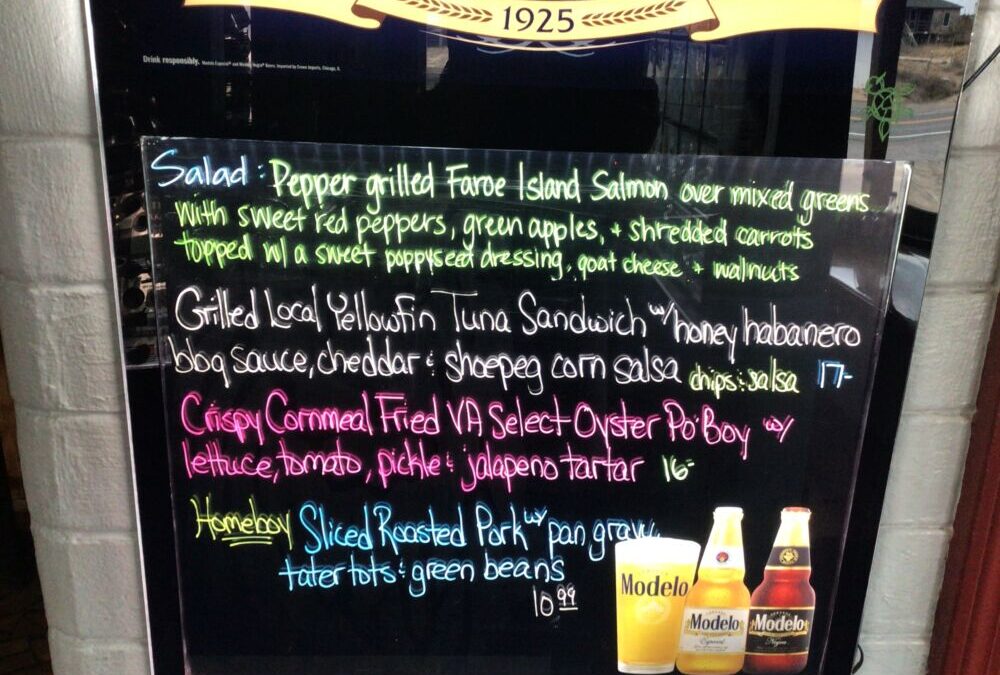 1925
Drink responsibly. Modelo Especial® and Modelo Negra® Beers. Imported by Crown Imports, Chicago, IL
Salad: Pepper grilled Faroe Island Salmon over mixed greens
with sweet red peppers, green apples, + shredded carrots
topped w/ a sweet poppyseed dressing, goat cheese + walnuts
Grilled Local Yellowfin Tuna Sandwich w/ honey habanero
bbq sauce, cheddar & shoepeg corn salsa chips & salsa 17-
Crispy Cornmeal Fried VA Select Oyster Po'Boy w/
lettuce, tomato, pickle & jalapeno tartar 16-
Homeboy Sliced Roasted Pork w/ pan gravy,
tater tots & green beans
10 99
Modelo
Modelo
Especial
Modelo
Negra